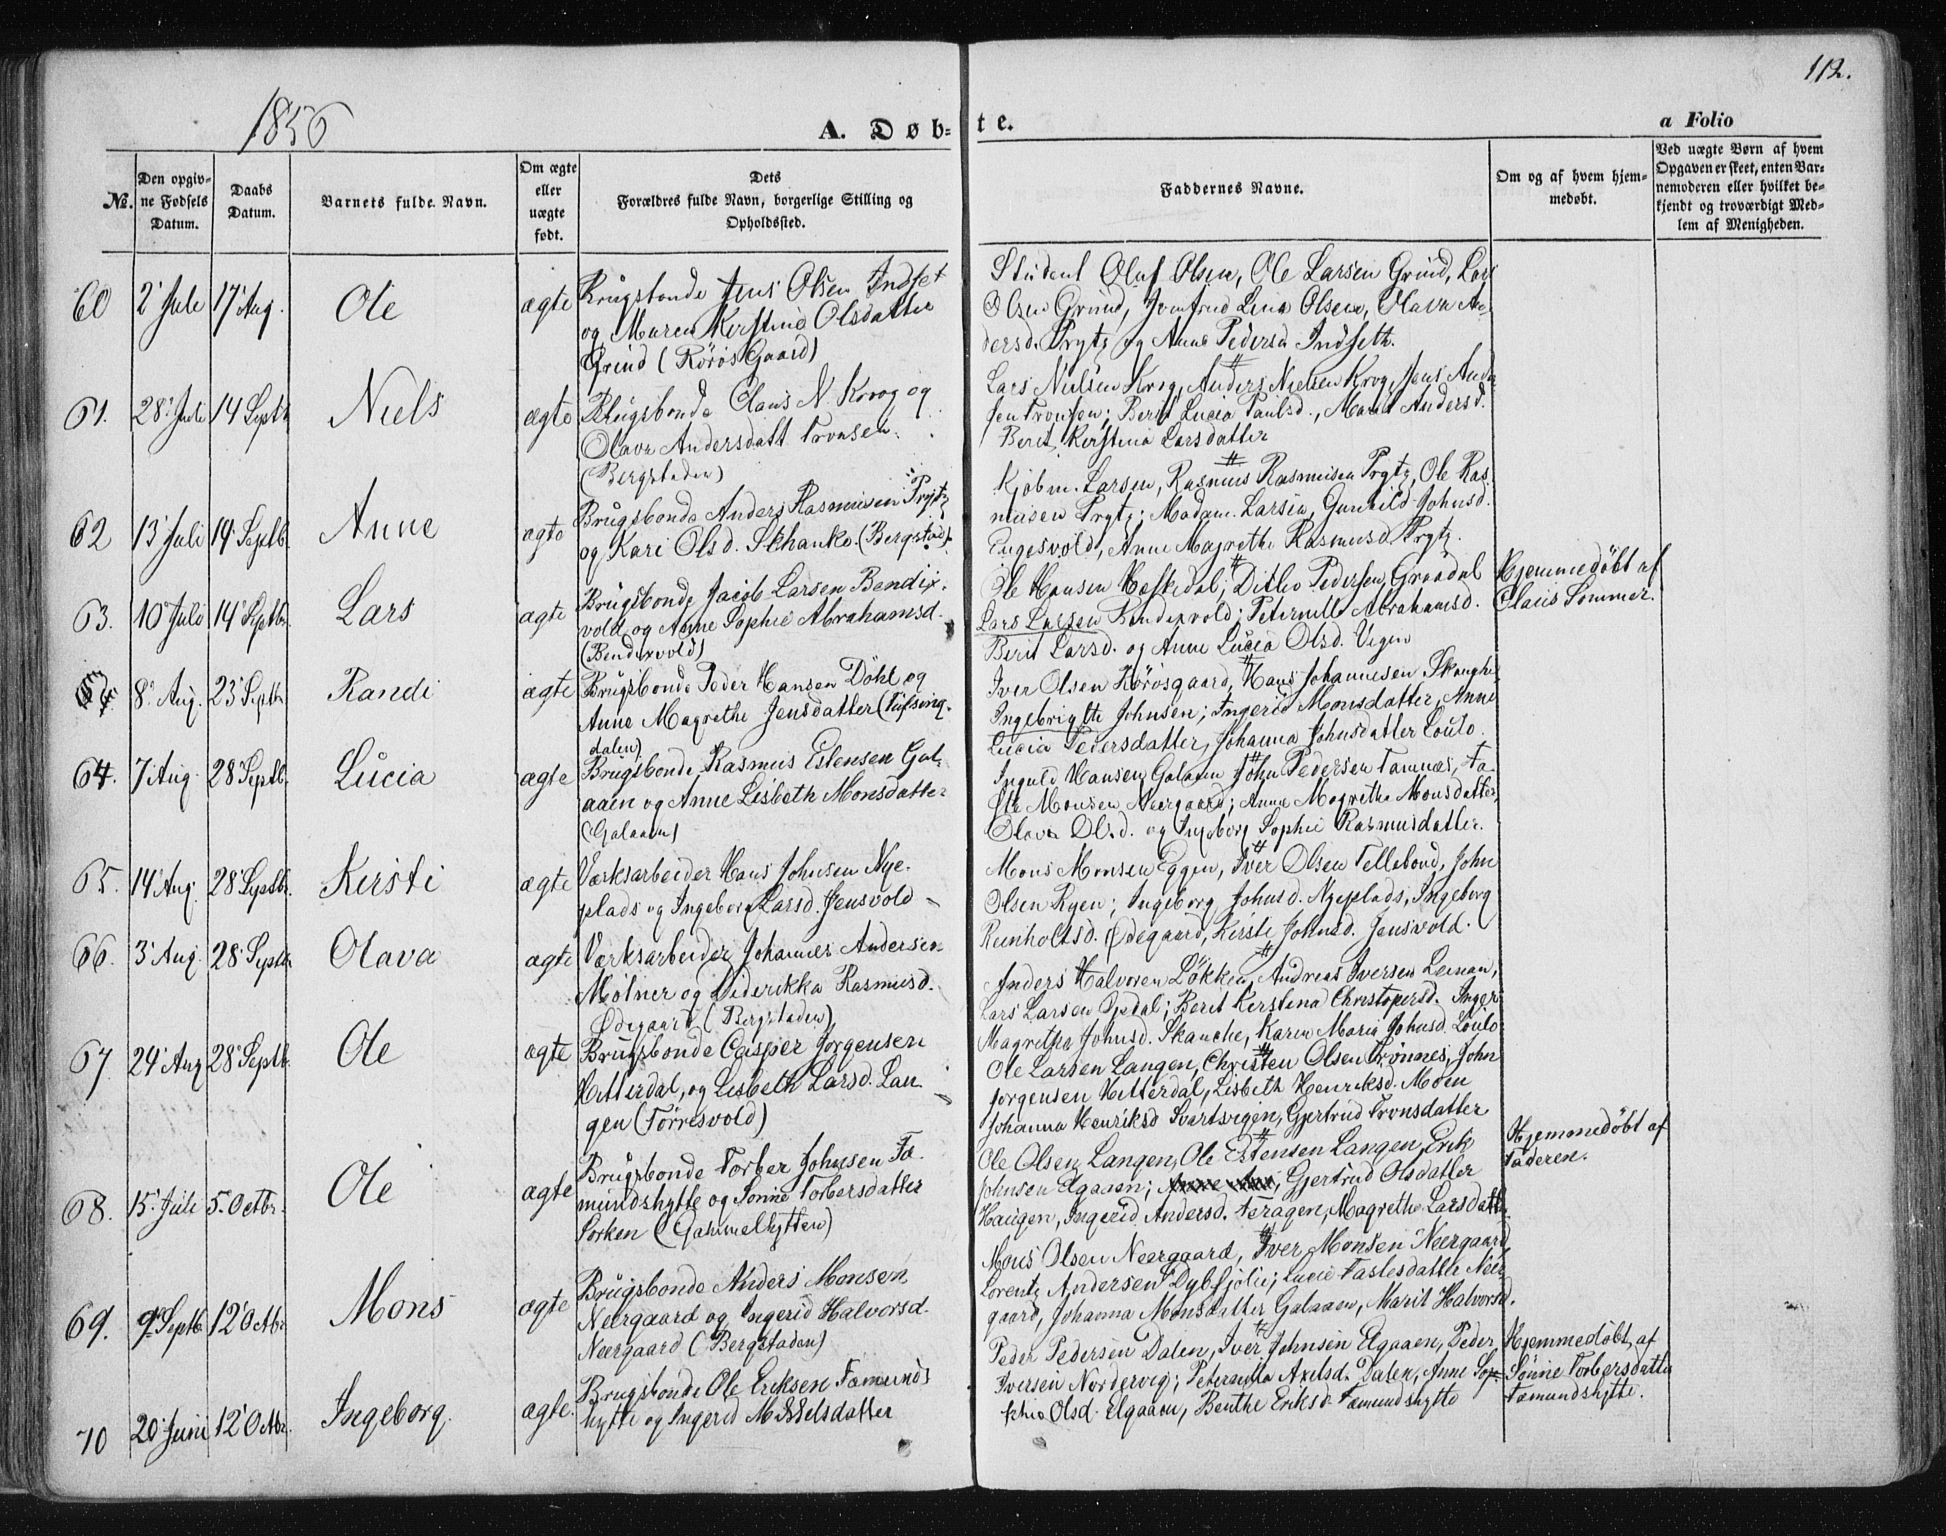 112.
1856
A. Døb-
te.
a Folio
No.
Den opgiv-
ne Fødsels
Datum.
Daabs
Datum.
Barnets fulde Navn.
Om ægte
eller
uægte
født.
Dets
Forældres fulde Navn, borgerlige Stilling og
Opholdssted.
Faddernes Navne.
Om og af hvem hjem-
medøbt.
Ved uægte Børn af hvem
Opgaven er skeet, enten Bar-
nemoderen eller hvilket be-
kjendt og troværdigt Med-
lem af Menigheden.
60 2' Juli 17' Aug. Ole ægte
Brugsbonde Jens Olsen Indset
og Maren Kirstine Olsdatter
Grind (Rörös Gaard)
Student Oluf Olsen, Ole Larsen Grind, Lars
Olsen Grind, Jomfrue Lina Olsen, Olava An-
dersd. Prytz og Anne Pedersd. Indseth.
61. 28' Juli 14 Septb. Niels ægte
Brugsbonde Claus N. Krog og
Olava Andersdatt Tronsen.
(Bergstaden)
Lars Nielsen Krog, Anders Nielsen Krog, Jens Ander
sen Tronsen; Berit Lucia Paulsd., Marit Andersd.
Berit Kirstina Larsdatter
62 13' Juli 14' Septb. Anne ægte
Brugsbonde Anders Rasmusen Prytz
og Kari Olsd. Schanke. (Bergstad)
Kjöbm. Larsen, Rasmus Rasmusen Prytz, Ole Ras-
musen Prytz; Madam Larsen, Gunhild Johnsd.
Engesvold, Anne Magrethe Rasmusd. Prytz.
63. 10' Juli 14' Septbr. Lars ægte
Brugsbonde Jacob Larsen Bendix-
vold og Anne Sophie Abrahamsd.
(Bendixvold)
Ole Hansen Heskedal; Ditlev Pedersen Graadal
Lars Larsen Bendixvold; Peternille Abrahamsd.
Berit Larsd. og Anne Lucia Olsd. Vegen
Hjemmedöbt af
Claus Sommer.
8' Aug. 23' Septbr. Randi ægte
Brugsbonde Peder Hansen Döhl og
Anne Magrethe Jensdatter (Tüfsing-
dalen)
Iver Olsen Rörosgaard, Hans Johannesen Skanche
Ingebrigte Johnsen; Ingerid Monsdatter, Anne
Lucia Pedersdatter, Johanna Johnsdatter Louto.
64. 7' Aug. 28' Septb. Lucia ægte
Brugsbonde Rasmus Estensen Gal-
aaen og Anne Lisbeth Monsdatter
(Galaaen)
Inguld Hansen Galaaen John Pedersen Tamnes, Fa-
ste Monsen Neergaard; Anne Magretha Monsdatter,
Olava Olsd. og Ingeborg Sophie Rasmusdatter.
65. 14' Aug. 28' Septbr. Kersti ægte
Værksarbeider Hans Johnsen Nye-
plads og Ingeborg Larsd. Jensvold
Mons Monsen Eggen, Iver Olsen Tellebond, John
Olsen Ryen; Ingeborg Johnsd. Nyeplads, Ingeborg
Reinholtsd. Ødegaard, Kirste Johnsd. Jensvold.
66. 3' Aug. 28' Septbr. Olava ægte
Værksarbeider Johannes Andersen
Mölner og Diderikka Rasmusd.
Ødegaard (Bergstaden)
Anders Halvorsen Lökken, Andreas Iversen Leman,
Lars Larsen Opdal; Berit Kerstina Christopersd. Inger
Magretha Johnsd. Skanche, Karen Maria Johnsd. Louto
67. 24' Aug 28' Septb. Ole ægte
Brugsbonde Casper Jörgensen
Hitterdal, og Lisbeth Larsd. Lan-
gen (Törresvold)
Ole Larsen Langen, Christen Olsen Grønnes, John
Jorgensen Hitterdal, Lisbeth Henriksd. Moen
Johanna Henriksd Svartvigen, Gjertrud Tronsdatter
68. 15' Juli 5. Octbr. Ole ægte
Brugsbonde Torber Johnsen Fæ-
mundshytte og Sönne Torbersdatter
Sorken (Gammelhytten)
Ole Olsen Langen, Ole Estensen Langen, Erik
Johnsen Elgaaen; Gjertrud Olsdatter
Haugen, Ingerid Andersd. Feragen, Magrethe Larsdatt.
Hjemmedöbt af
Faderen.
69. 9' Septb. 12' Octbr Mons ægte
Brugsbonde Anders Monsen
Neergaard og Ingerid Halvorsd.
Neergaard (Bergstaden)
Mons Olsen Neergaard, Iver Monsen Neergaard
Lorentz Andersen Dybfjölie; Lucie Fastesdatter Neer
gaard, Johanna Monsdatter Galaaen, Marit Halvorsd.
70 20' Juni 12' Octbr. Ingeborg. ægte.
Brugsbonde Ole Eriksen Fæmunds
hytte og Ingerid Mikkelsdatter
Peder Pedersen Dalen, Iver Johnsen Elgaaen, Peder
Iversen Nordervig; Peternilla Axelsd. Dalen, Anne Sop-
phia Olsd. Elgaaen, Benthe Eriksd. Fæmundshytte
Hjemmedöbt af
Sönne Torbersdatter
Fæmundshytte.